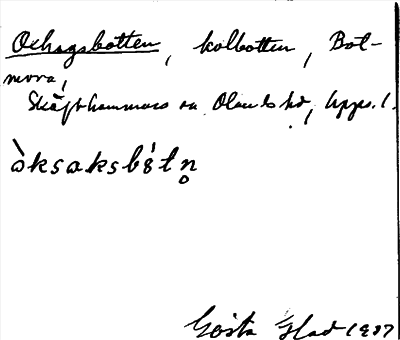 Ochogsbotten, kolbotten, Bot-
mora,
Skäfthammars sn Olands hd, Upps. l.
òksaksbót n̥
Gösta Glad 1937